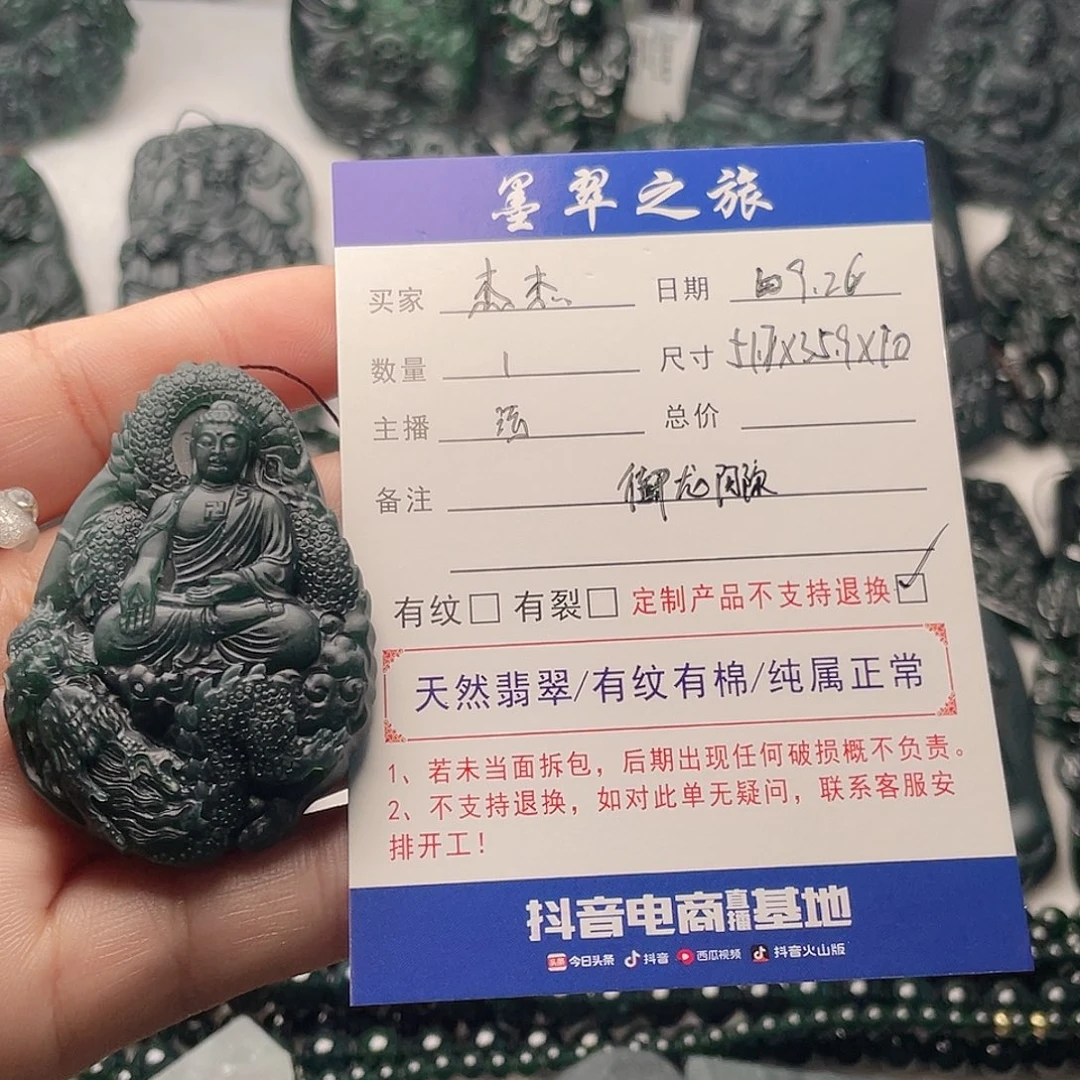 墨翠之旅
买家 杰杰 日期 9.26
数量 1 尺寸 51.7X35.9X10
主播 总价
备注 御龙
有纹□ 有裂□ 定制产品不支持退换☑
天然翡翠/有纹有棉/纯属正常
1、若未当面拆包，后期出现任何破损概不负责。
2、不支持退换，如对此单无疑问，联系客服安
排开工！
抖音电商直播基地
头条 今日头条 抖音 西瓜视频 抖音火山版
卍